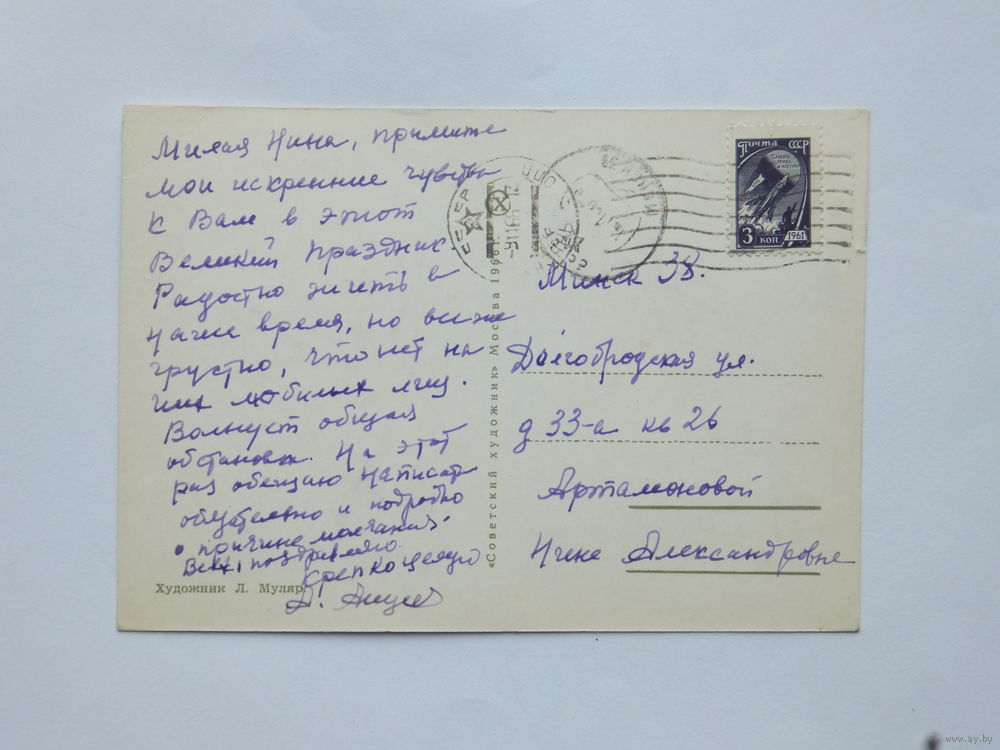 Милая Нина, примите
мои искренние чувства
к Вам в этот
Великий праздник
Радостно жить в
наше время, но все же
грустно, что нет на
них любимых лиц.
Волнует общая
обстановка. На этот
раз обещаю написать
обязательно и подробно
о причине молчания.
Всех поздравляю.
Крепко целую
А.
Художник Л. Муляр.
«Советский художник» Москва 1966 г.
Почта СССР
Слава
труду
и науке
3 коп 1961
СССР
Минск 38.
Долгобродская ул.
д 33-а кв 26
Артамоновой
Нине Александровне
www.ay.by